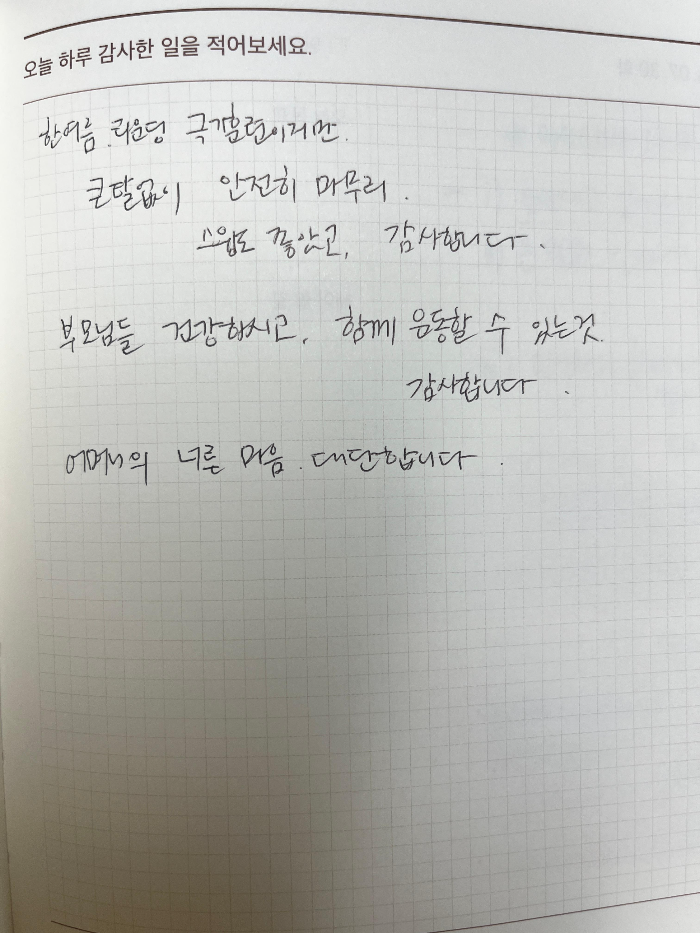 오늘 하루 감사한 일을 적어보세요.
한여름 라운딩 극기훈련이지만.
큰탈없이 안전히 마무리.
스윙도 좋았고, 감사합니다.
부모님들 건강하시고, 함께 운동할 수 있는것.
감사합니다.
어머니의 너른 마음. 대단합니다.